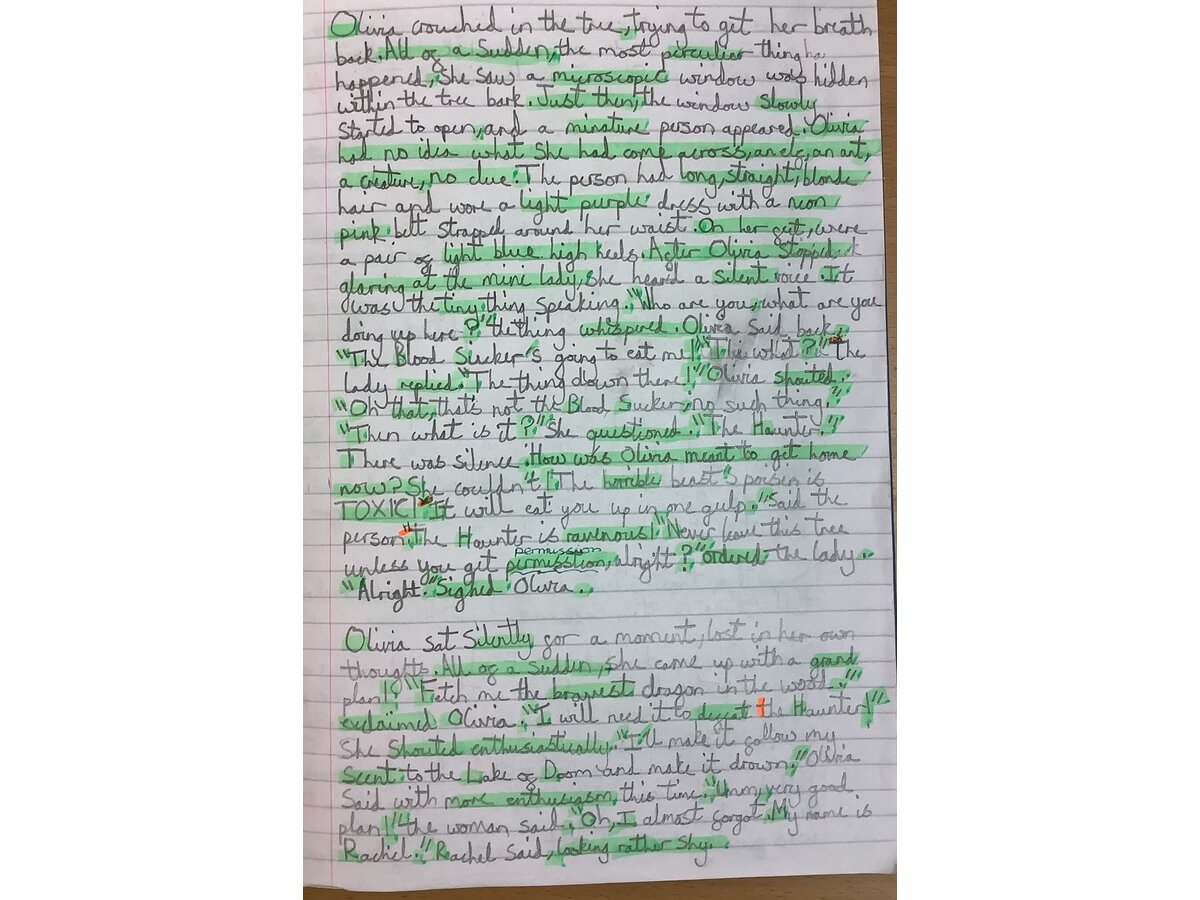 Olivia crouched in the tree, trying to get her breath
back. All of a Sudden, the most perculier thing ha
happened, She saw a microscopic window was hidden
within the tree bark. Just then, the window slowly
Started to open, and a minature person appeared. Olivia
had no idea what She had come across, an elf, an ant,
a creature, no clue. The person had long, straight, blonde
hair and wore a light purple dress with a neon
pink belt strapped around her waist. On her feet, were
a pair of light blue high heels. After Olivia stopped
glaring at the mini lady, she heard a silent voice. It
was the tiny thing speaking. "Who are you, what are you
doing up here?" the thing whispered. Olivia said back,
"The Blood Sucker's going to eat me!" "The what?" The
lady replied. "The thing down there!" Olivia shouted.
"Oh that, that's not the Blood Sucker, no such thing."
"Then what is it?" She questioned. "The Haunter."
There was silence. How was Olivia meant to get home
now? She couldn't! The horrible beast's poison is
TOXIC! It will eat you up in one gulp." Said the
person. "The Haunter is ravenous!" Never leave this tree
permission
unless you get permisstion, alright?" ordered the lady.
"Alright." Sighed Olivia.
Olivia sat Silently for a moment, lost in her own
thoughts. All of a sudden, she came up with a grand
plan! "Fetch me the bravest dragon in the wood."
exclaimed Olivia. "I will need it to defeat the Haunter!"
She Shouted enthusiastically. "I'll make it follow my
Scent to the Lake of Doom and make it drown." Olivia
Said with more enthusiasm, this time. "Umm, very good
plan!" the woman said, "Oh, I almost forgot. My name is
Rachel." Rachel said, looking rather shy.